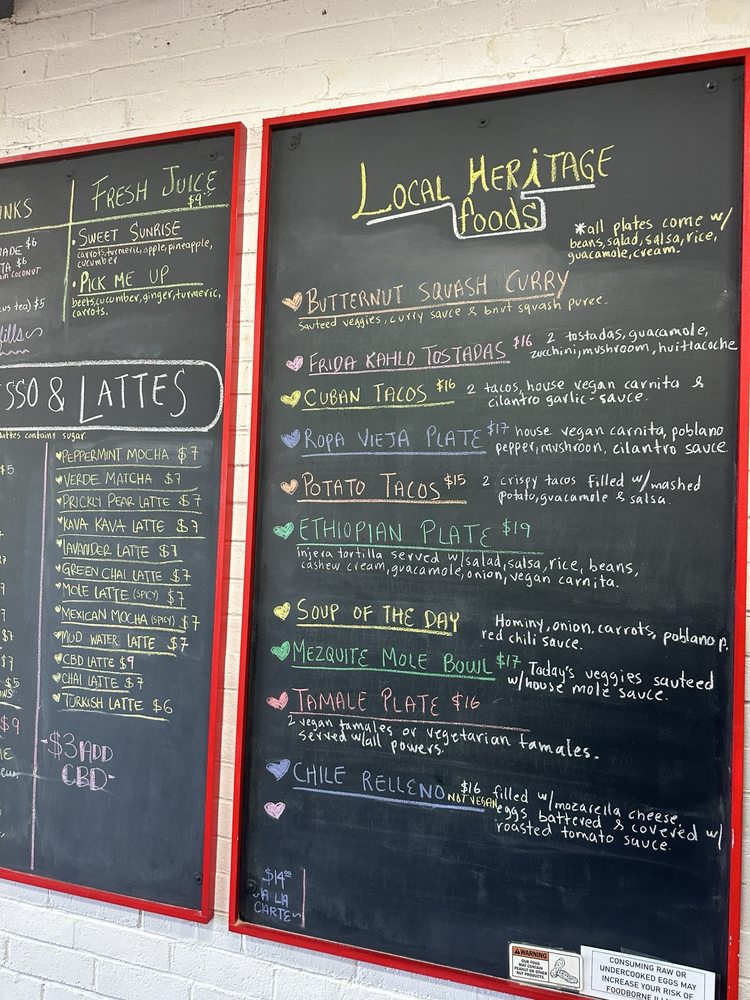 NKS
ADE $6
TA $6
COCONUT
us tea) $5
fills
FRESH JUICE
$9
• SWEET SUNRISE
carrots, turmeric, apple, pineapple,
cucumber
• PICK ME UP
beets, cucumber, ginger, turmeric,
carrots.
SSO & LATTES
lattes contains sugar
$5
$7
$5
$9
PEPPERMINT MOCHA $7
VERDE MATCHA $7
PRICKLY PEAR LATTE $7
KAVA KAVA LATTE $7
LAVANDER LATTE $7
GREEN CHAI LATTE $7
MOLE LATTE (SPICY) $7
MEXICAN MOCHA (SPICY) $7
MUD WATER LATTE $7
CBD LATTE $9
CHAI LATTE $7
TURKISH LATTE $6
-$3 ADD
CBD-
LOCAL HERiTAGE
foods
*all plates come w/
beans, salad, salsa, rice,
guacamole, cream.
BUTTERNUT SQUASH CURRY
sauteed veggies, curry sauce & bnut squash puree.
FRIDA KAHLO TOSTADAS $16 2 tostadas, guacamole,
zucchini, mushroom, huittacoche
CUBAN TACOS $16 2 tacos, house vegan carnita &
cilantro garlic sauce.
ROPA VIEJA PLATE $17 house vegan carnita, poblano
pepper, mushroom, cilantro sauce.
POTATO TACOS $15 2 crispy tacos filled w/mashed
potato, guacamole & salsa.
ETHIOPIAN PLATE $19
injera tortilla served w/salad, salsa, rice, beans,
cashew cream, guacamole, onion, vegan carnita.
SOUP OF THE DAY Hominy, onion, carrots, poblano p.
red chili sauce.
MEZQUITE MOLE BOWL $17 Today's veggies sauteed
w/house mole sauce.
TAMALE PLATE $16
2 vegan tamales or vegetarian tamales.
served w/all powers.
CHILE RELLENO $16 NOT VEGAN filled w/mozarella cheese,
eggs battered & covered w/
roasted tomato sauce.
$14.00
A LA
CARTE
WARNING
OUR FOOD
MAY CONTAIN
PEANUT OR OTHER
NUT PRODUCTS.
CONSUMING RAW OR
UNDERCOOKED EGGS MAY
INCREASE YOUR RISK OF